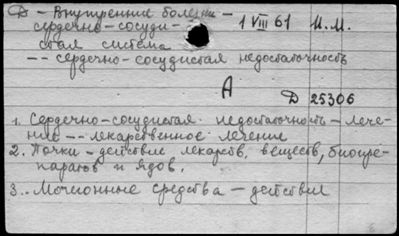 Д – Внутренние болезни –
сердечно-сосуди-
стая система
-- сердечно-сосудистая недостаточность
1 VIII 61 И.М.
А
Д 25306
1. Сердечно-сосудистая недостаточность – лече-
ние -- лекарственное лечение
2. Почки – действие лекарств. веществ, биопре-
паратов и ядов.
3. Мочегонные средства – действие